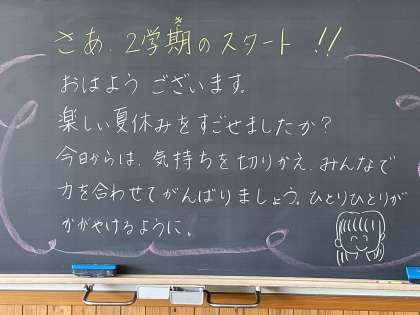 さあ、2学期のスタート!!
おはようございます。
楽しい夏休みをすごせましたか?
今日からは、気持ちを切りかえ、みんなで
力を合わせてがんばりましょう。ひとりひとりが
かがやけるように。